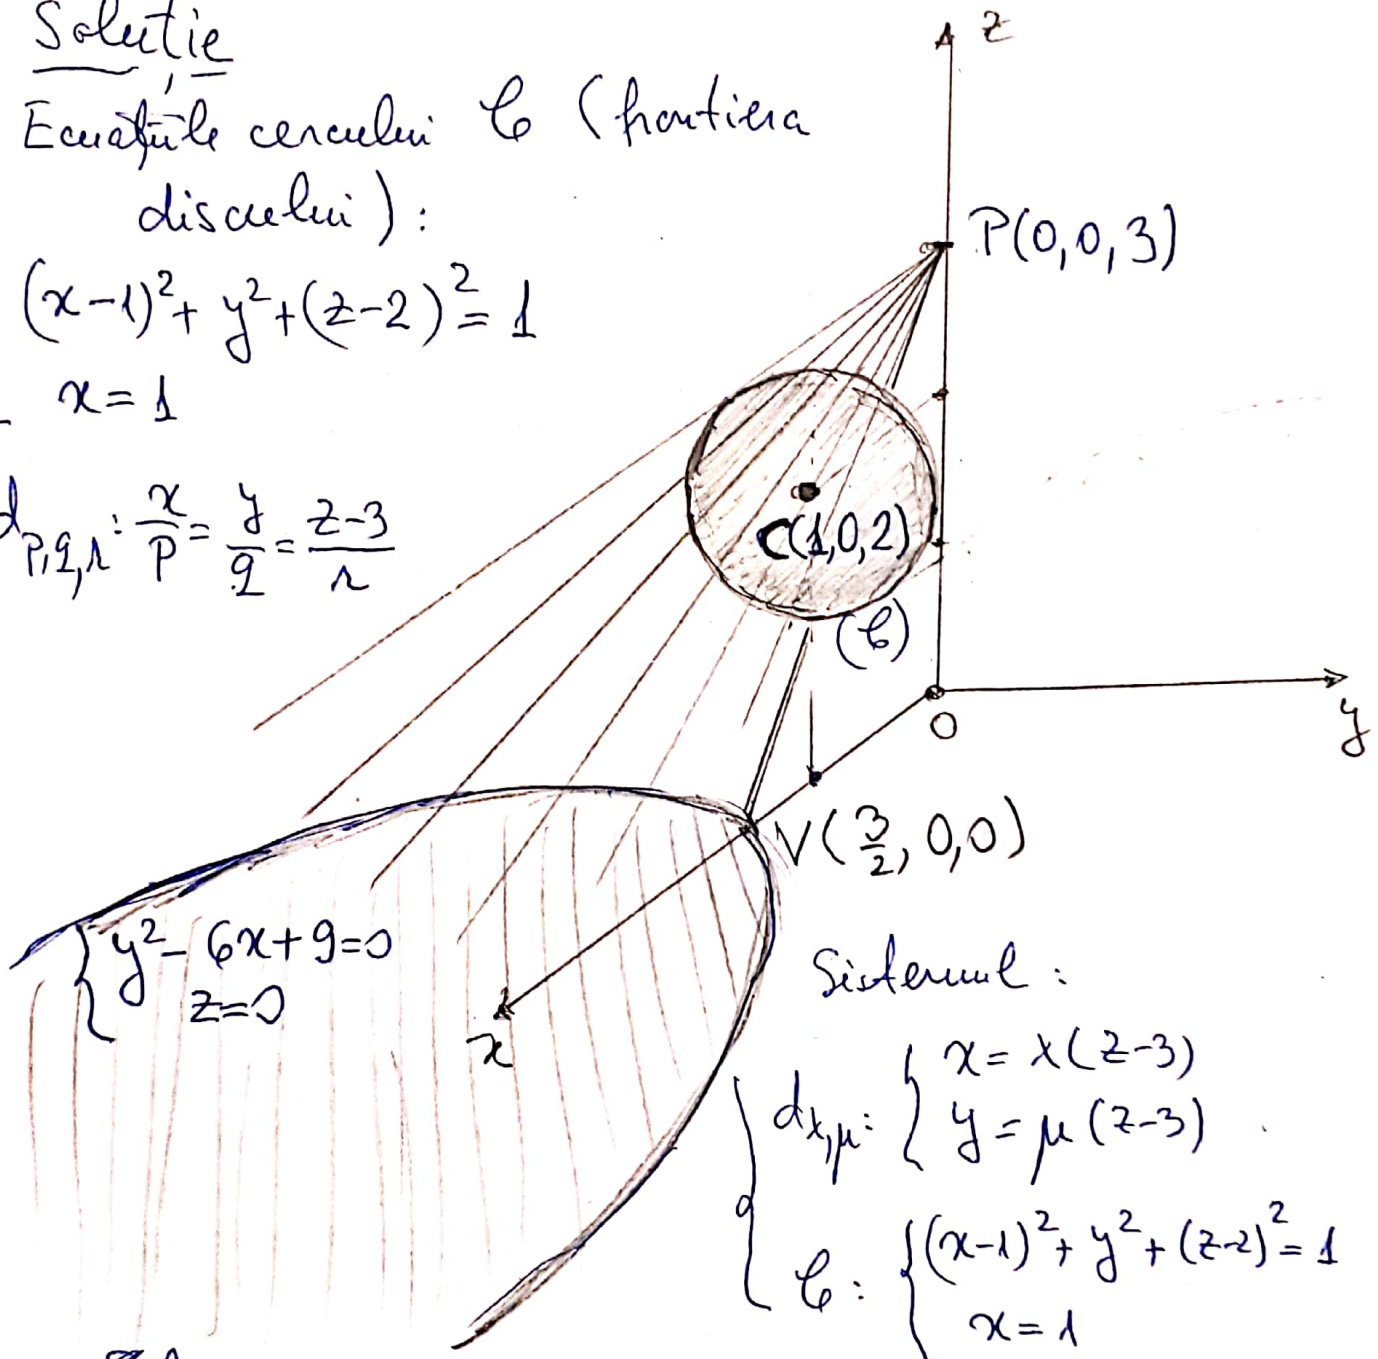 Soluție
Ecuațiile cercului C (frontiera
discului):
(x-1)²+ y²+(z-2)²= 1
x= 1
d_{p,q,r}: x/p = y/q = z-3/r
z
P(0,0,3)
C(1,0,2)
(C)
O
y
V(3/2, 0,0)
{ y²- 6x+9=0
z=0
x
Sistemul :
d_{λ,μ}: { x= λ(z-3)
y= μ(z-3)
C: { (x-1)²+ y²+(z-2)²= 1
x=1